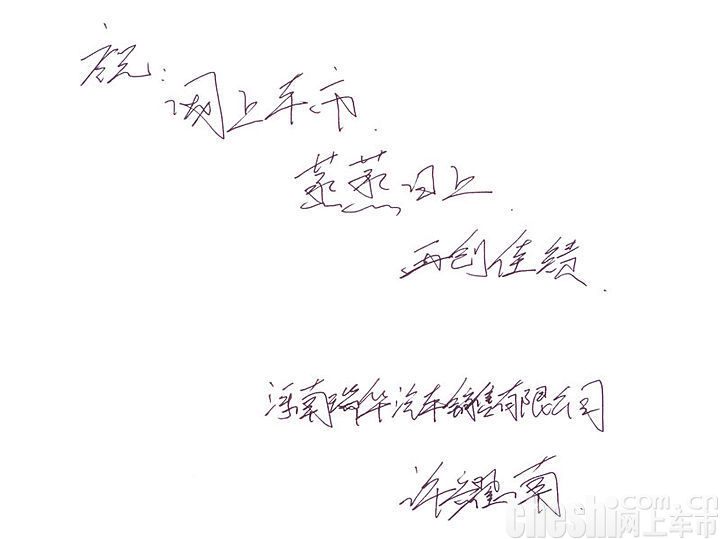 祝:
网上车市
蒸蒸日上
再创佳绩.
河南瑞华汽车销售有限公司
许耀南.
cheshi.com.cn
网上车市